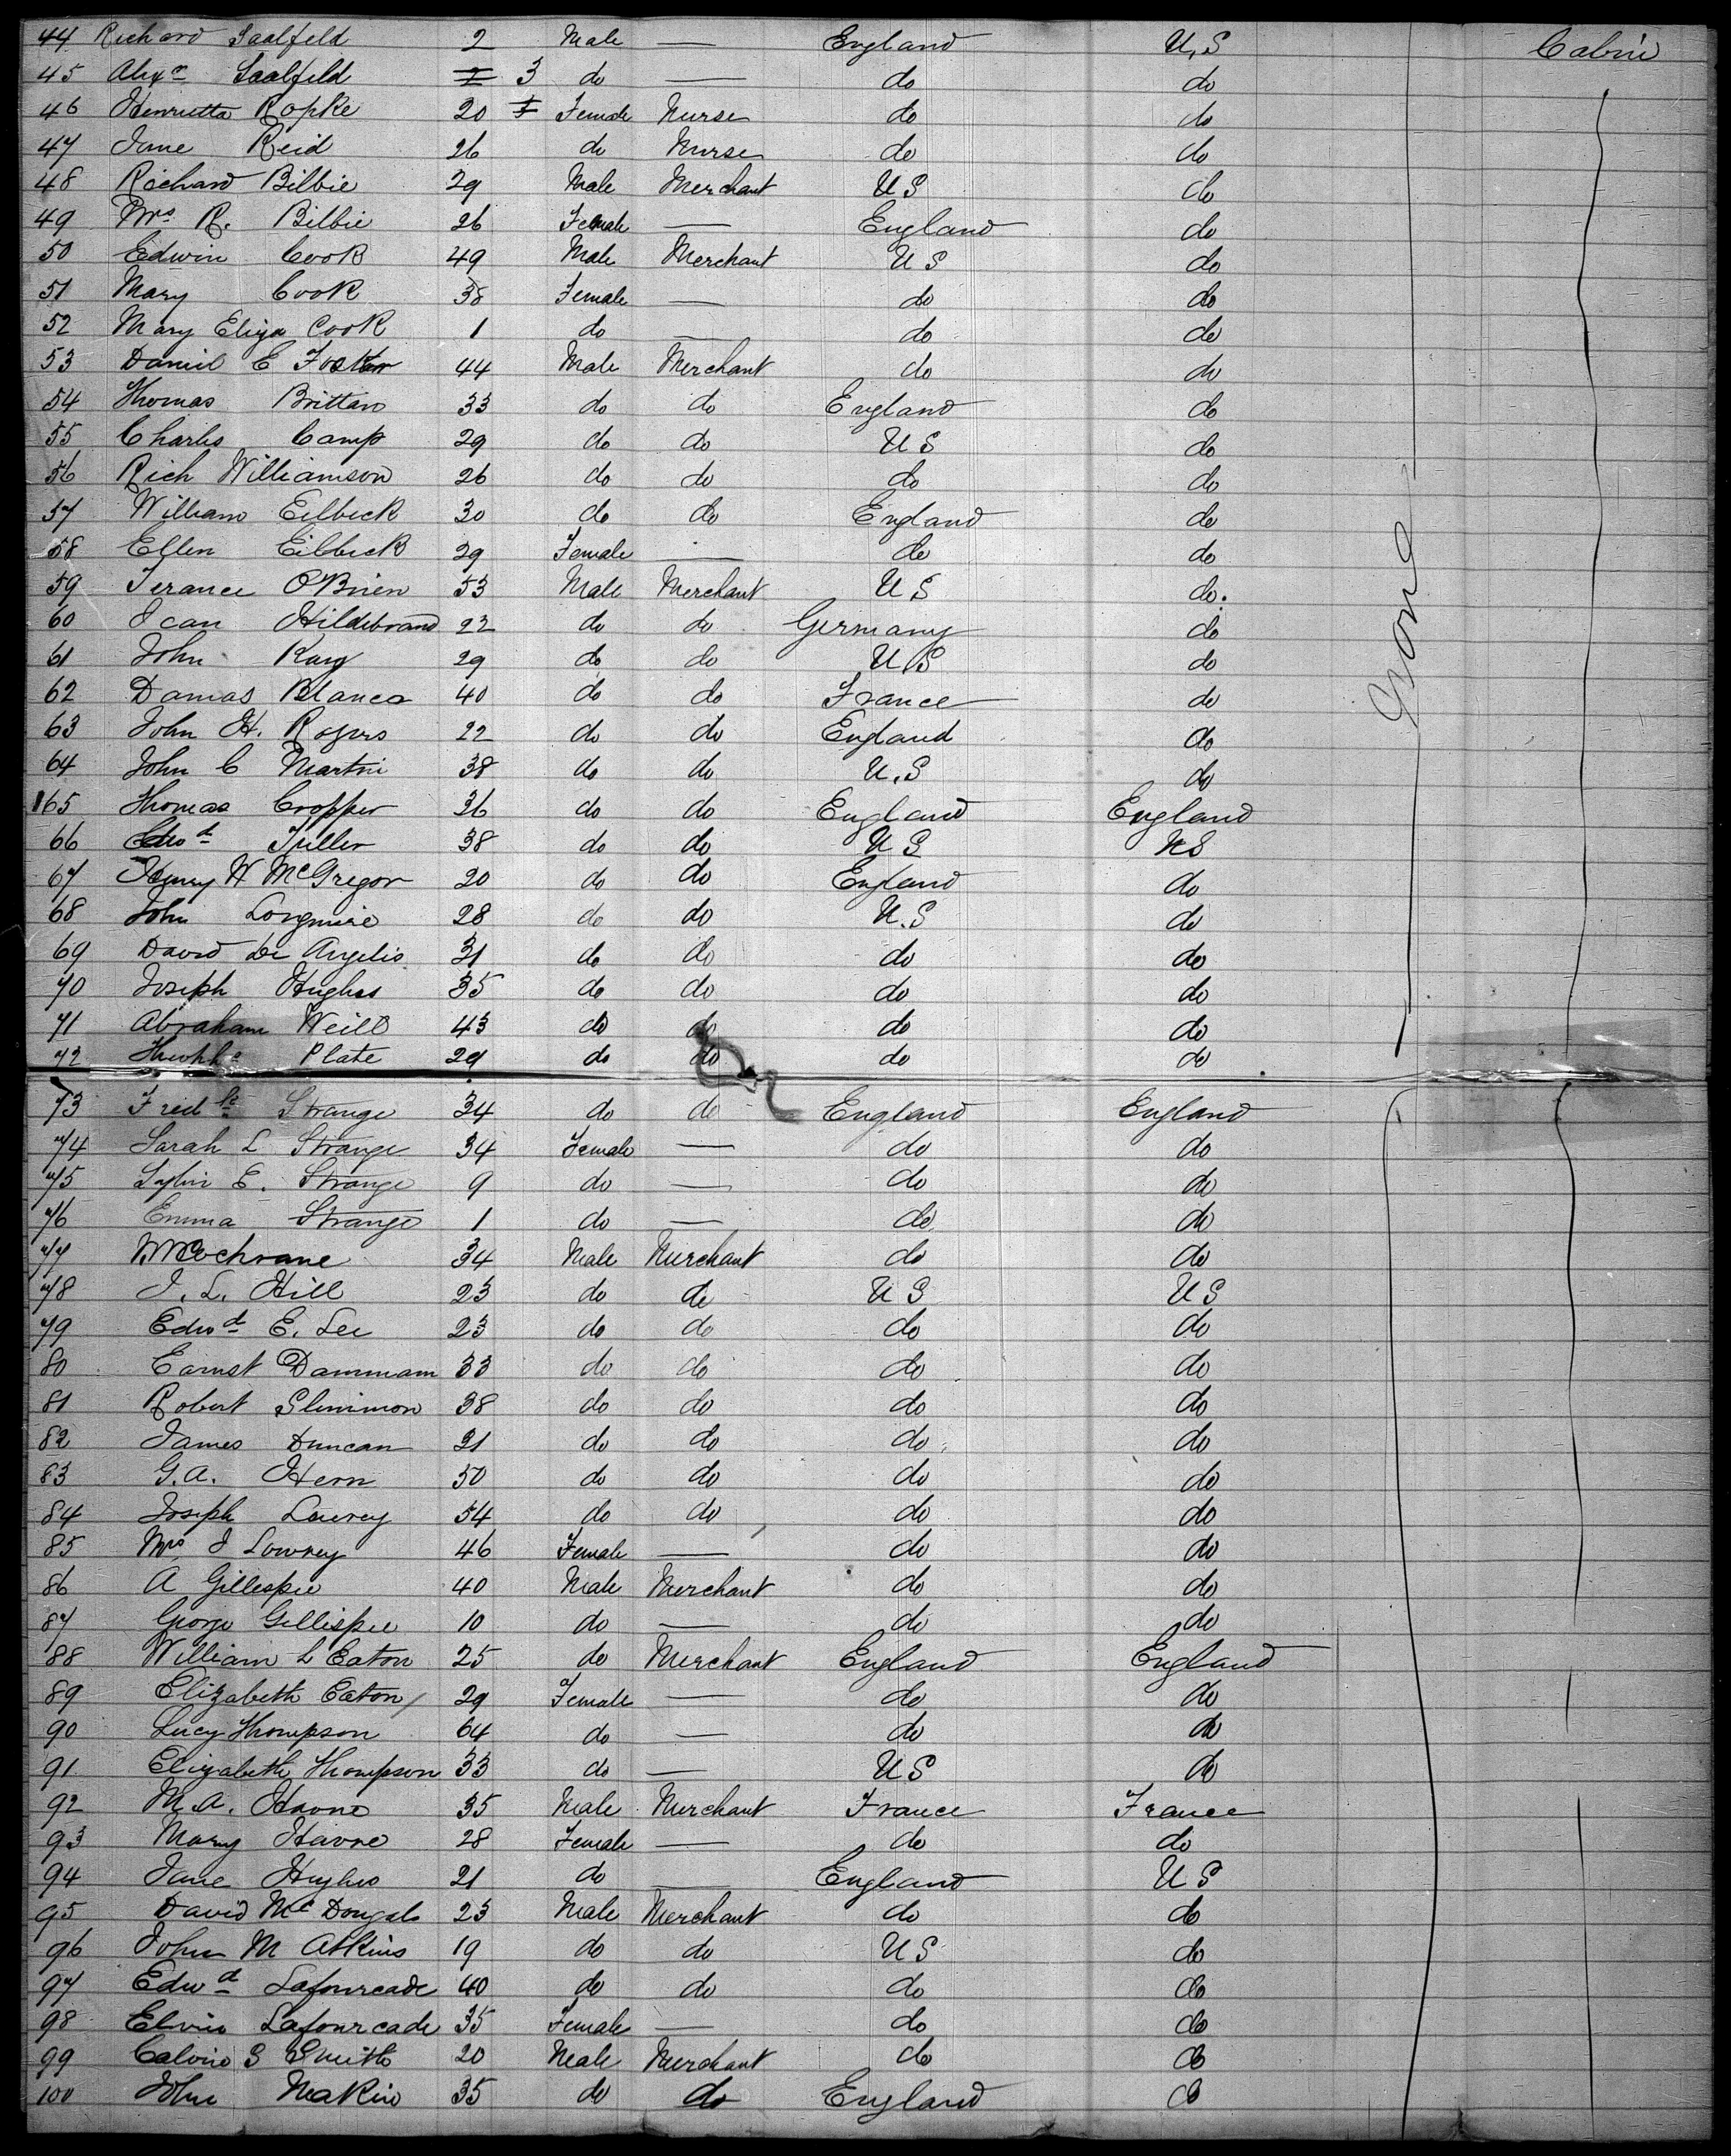 44 Richard Saalfeld 2 Male — England U.S Cabin
45 Alexr Saalfeld 3 do — do do
46 Henrietta Ropke 20 Female Nurse do do
47 Jane Reid 26 do Nurse do do
48 Richard Bilbie 29 Male Merchant U S do
49 Mrs R. Bilbie 26 Female — England do
50 Edwin Cook 49 Male Merchant U S do
51 Mary Cook 38 Female — do do
52 Mary Eliza Cook 1 do — do do
53 Daniel C Foster 44 Male Merchant do do
54 Thomas Brittan 33 do do England do
55 Charles Camp 29 do do U S do
56 Rich Williamson 26 do do do do
57 William Eilbeck 30 do do England do
58 Ellen Eilbeck 29 Female — do do
59 Terance O'Brien 53 Male Merchant U S do
60 Jean Hildebrand 22 do do Germany do
61 John Kay 29 do do U.S do
None
62 Damas Blanco 40 do do France do
63 John H. Rogers 22 do do England do
64 John C Martin 38 do do U.S do
165 Thomas Cropper 36 do do England England
66 Edwd Fuller 38 do do U S US
67 Henry W McGregor 20 do do England do
68 John Longmire 28 do do U.S do
69 David De Angelis 31 do do do do
70 Joseph Hughes 35 do do do do
71 Abraham Weill 43 do do do do
72 Plate 29 do do do do
73 Fredk Strange 34 do do England England
74 Sarah L Strange 34 Female — do do
75 E. Strange 9 do — do do
76 Emma Strange 1 do — do do
77 Cochrane 34 Male Merchant do do
78 J. L. Hill 23 do do U S U S
79 Edwd E. Lee 23 do do do do
80 Earnst Dammam 33 do do do do
81 Robert Slimmon 38 do do do do
82 James Duncan 31 do do do do
83 G.A. Hern 50 do do do do
84 Joseph Lowrey 54 do do do do
85 Mrs J Lowrey 46 Female — do do
86 A Gillespie 40 Male Merchant do do
87 George Gillispie 10 do — do do
88 William L Eaton 25 do Merchant England England
89 Elizabeth Eaton 29 Female — do do
90 Lucy Thompson 64 do — do do
91 Elizabeth Thompson 33 do — U S do
92 M. A. Havne 35 Male Merchant France France
93 Mary Havne 28 Female — do do
94 Jane Hughes 21 do — England U S
95 David McDougals 23 Male Merchant do do
96 John M Atkins 19 do do U S do
97 Edwd Lafourcade 40 do do do do
98 Elvira Lafourcade 35 Female — do do
99 Calvin S Smith 20 Male Merchant do do
100 John Makin 35 do do England do